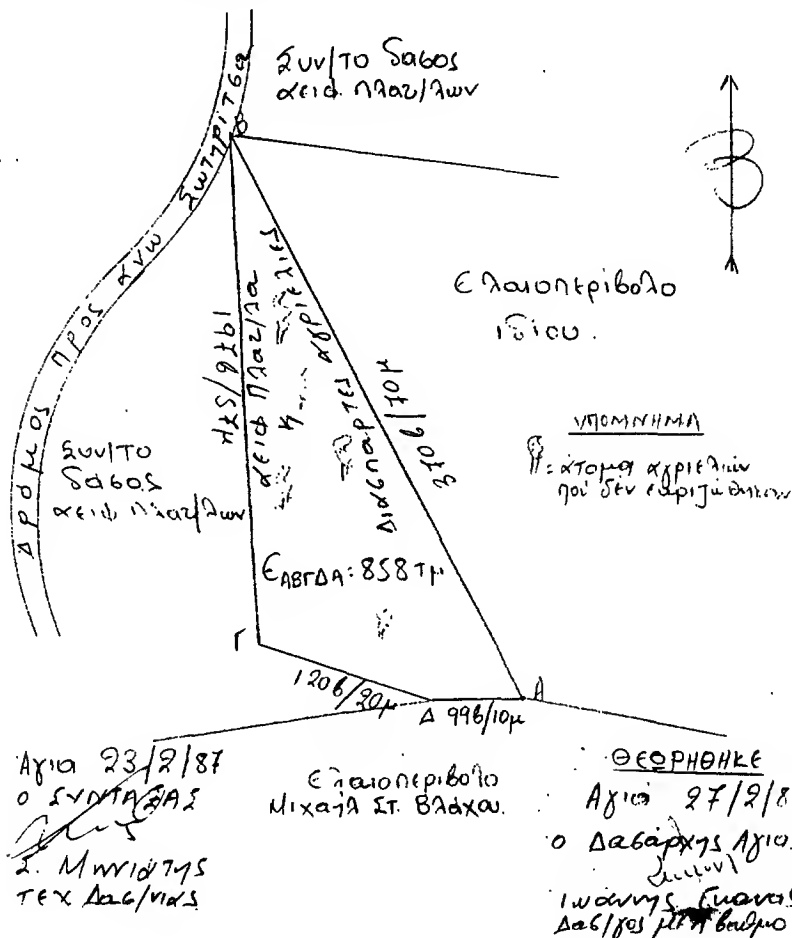 Συν/το δάσος
αειφ. πλατ/λων
Β
Δρόμος προς άνω Σωτηρίτσα
Β
Ελαιοπερίβολο
ιδίου.
197β/57μ
αειφ πλατ/λα
Διάσπαρτες αγριελιές
370β/70μ
ΥΠΟΜΝΗΜΑ
= άτομα αγριελιών
πού δέν εκριζώθηκαν
Συν/το
δάσος
αειφ πλατ/λων
ΕΑΒΓΔΑ: 858 τμ
Γ
120β/20μ
Δ
99β/10μ
Α
Αγιά 23/2/87
Ο ΣΥΝΤΑΞΑΣ
Σ. Μηνιάτης
ΤΕΧ Δασ/νίας
Ελαιοπερίβολο
Μιχαήλ Στ. Βλάχου.
ΘΕΩΡΗΘΗΚΕ
Αγιά 27/2/8
Ο Δασάρχης Αγιάς
Ιωάννης Γκανάς
Δασ/γος με Α βαθμό